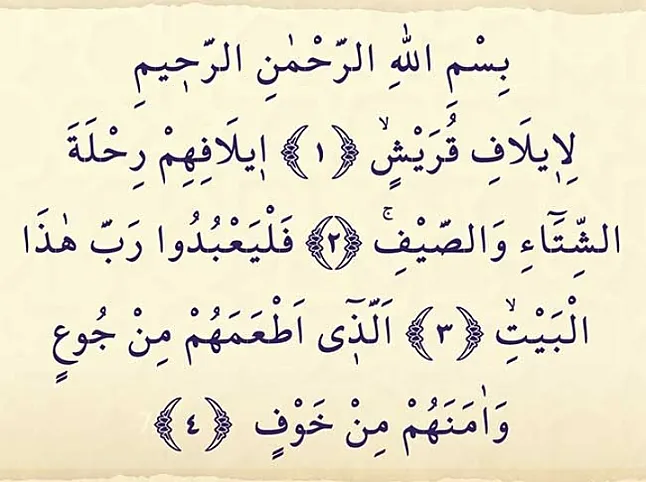 بِسْمِ اللهِ الرَّحْمٰنِ الرَّحٖيمِ
لِاٖيلَافِ قُرَيْشٍۙ ﴿١﴾ اٖيلَافِهِمْ رِحْلَةَ
الشِّتَٓاءِ وَالصَّيْفِۚ ﴿٢﴾ فَلْيَعْبُدُوا رَبَّ هٰذَا
الْبَيْتِۙ ﴿٣﴾ اَلَّذٖٓى اَطْعَمَهُمْ مِنْ جُوعٍ
وَاٰمَنَهُمْ مِنْ خَوْفٍ ﴿٤﴾